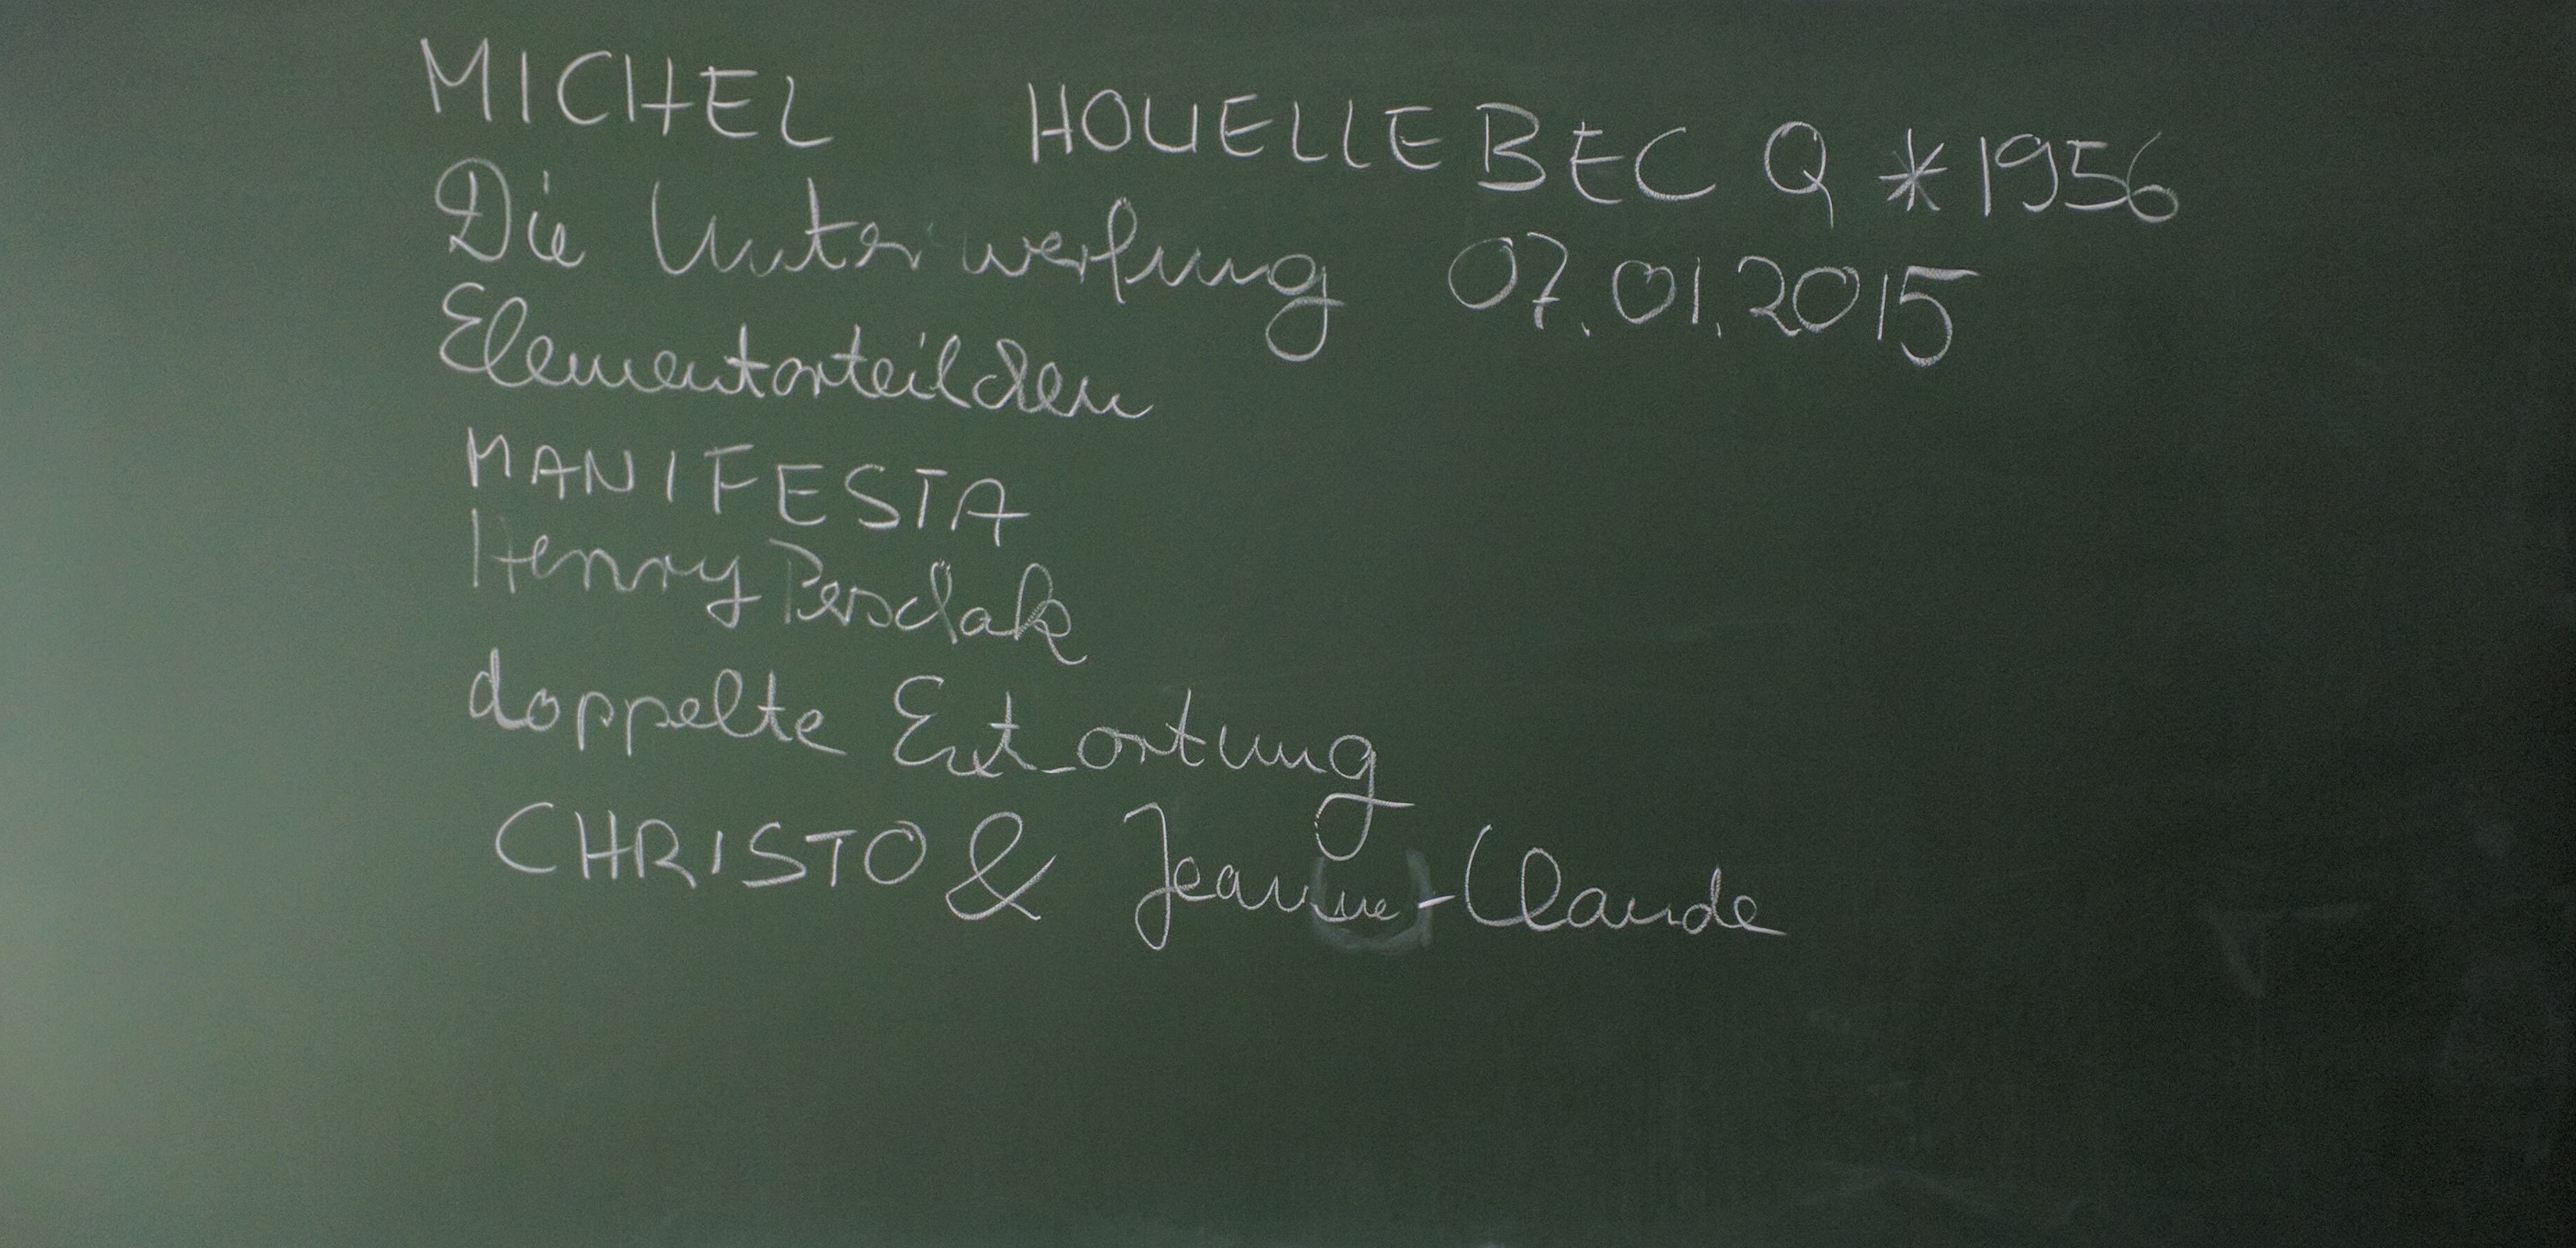 MICHEL HOUELLEBECQ *1956
Die Unterwerfung 07.01.2015
Elementarteilchen
MANIFESTA
Henry Persdak
doppelte Ent_ortung
CHRISTO & Jeanne-Claude